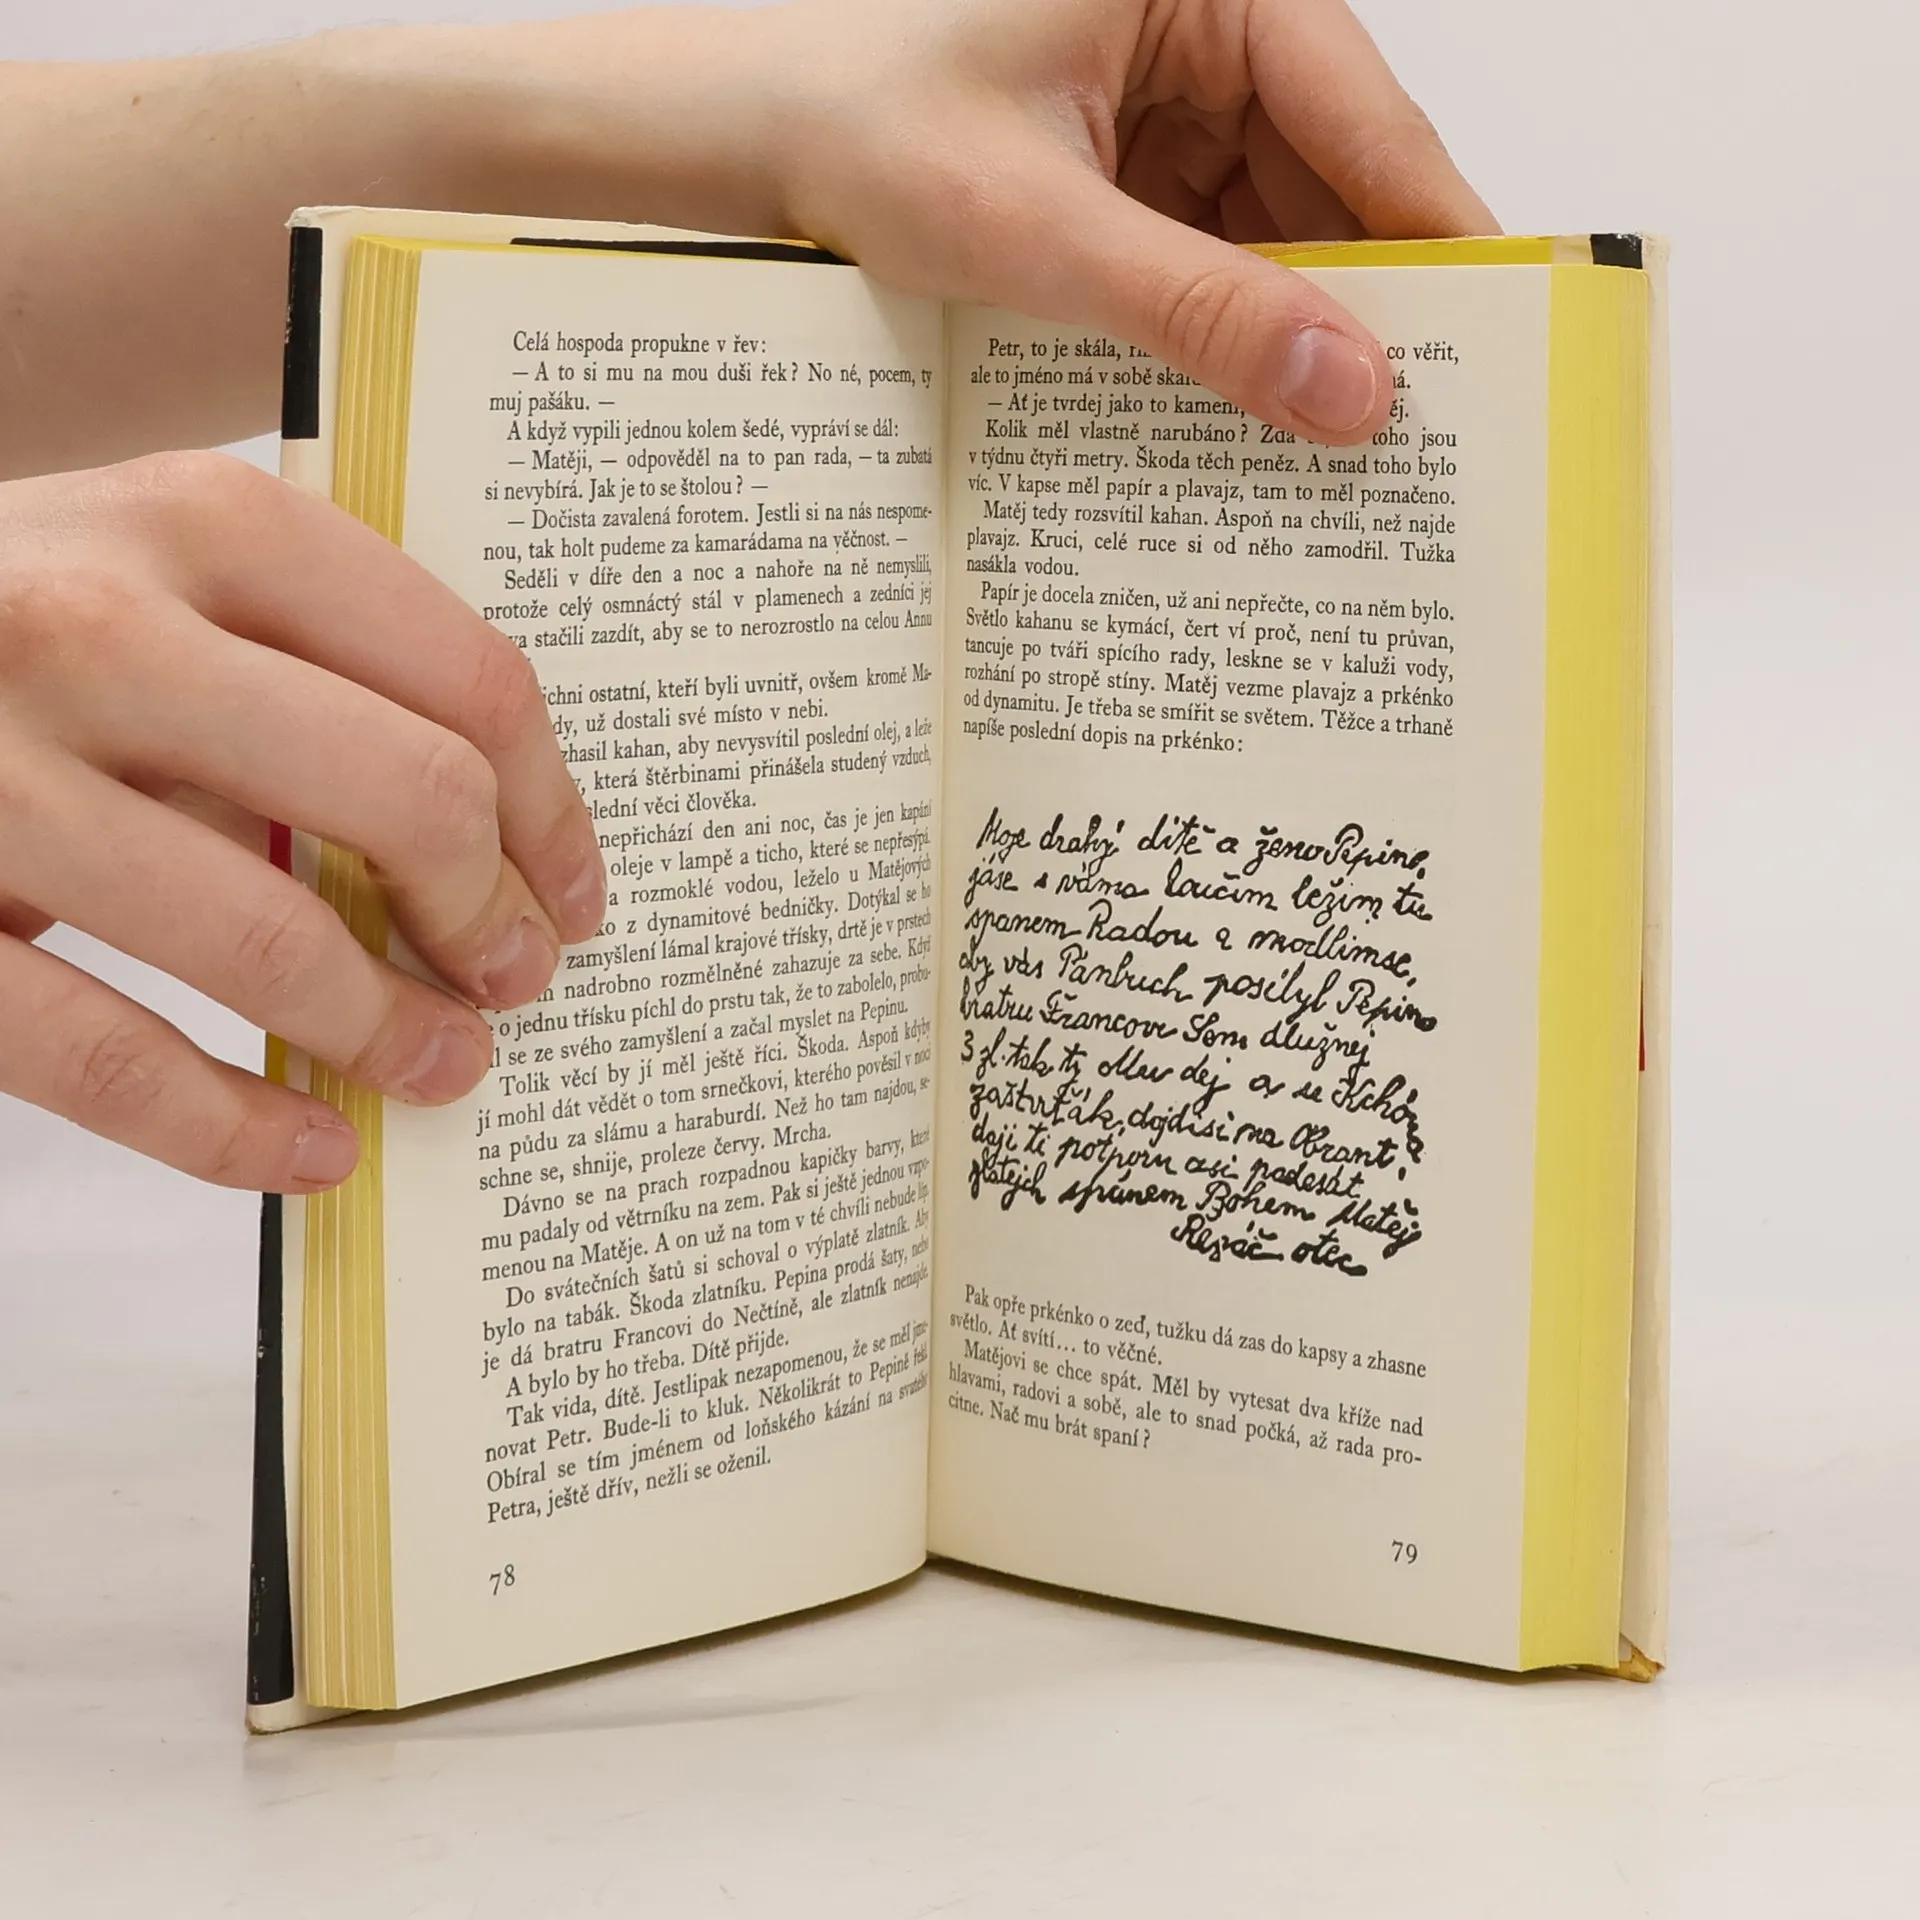 Celá hospoda propukne v řev:
— A to si mu na mou duši řek? No né, pocem, ty
muj pašáku. —
A když vypili jednou kolem šedé, vypráví se dál:
— Matěji, — odpověděl na to pan rada, — ta zubatá
si nevybírá. Jak je to se štolou? —
— Dočista zavalená forotem. Jestli si na nás nespome-
nou, tak holt pudeme za kamarádama na věčnost. —
Seděli v díře den a noc a nahoře na ně nemyslili,
protože celý osmnáctý stál v plamenech a zedníci jej
stačili zazdít, aby se to nerozrostlo na celou Annu
ostatní, kteří byli uvnitř, ovšem kromě Ma-
už dostali své místo v nebi.
zhasil kahan, aby nevysvítil poslední olej, a leže
která štěrbinami přinášela studený vzduch,
věci člověka.
nepřichází den ani noc, čas je jen kapání
oleje v lampě a ticho, které se nepřesýpá.
a rozmoklé vodou, leželo u Matějových
z dynamitové bedničky. Dotýkal se ho
zamyšlení lámal krajové třísky, drtě je v prstech
nadrobno rozmělněné zahazuje za sebe. Když
o jednu třísku píchl do prstu tak, že to zabolelo, probu-
se ze svého zamyšlení a začal myslet na Pepinu.
Tolik věcí by jí měl ještě říci. Škoda. Aspoň kdyby
jí mohl dát vědět o tom srnečkovi, kterého pověsil v noci
na půdu za slámu a haraburdí. Než ho tam najdou, se-
schne se, shnije, proleze červy. Mrcha.
Dávno se na prach rozpadnou kapičky barvy, které
mu padaly od větrníku na zem. Pak si ještě jednou vzpo-
menou na Matěje. A on už na tom v té chvíli nebude líp.
Do svátečních šatů si schoval o výplatě zlatník. Aby
bylo na tabák. Škoda zlatníku. Pepina prodá šaty, nebo
je dá bratru Francovi do Nečtíně, ale zlatník nenajde.
A bylo by ho třeba. Dítě přijde.
Tak vida, dítě. Jestlipak nezapomenou, že se měl jme-
novat Petr. Bude-li to kluk. Několikrát to Pepině řekl.
Obíral se tím jménem od loňského kázání na svatého
Petra, ještě dřív, nežli se oženil.
78
Petr, to je skála, co věřit,
ale to jméno má v sobě
— Ať je tvrdej jako to kamení,
Kolik měl vlastně narubáno? Zdá toho jsou
v týdnu čtyři metry. Škoda těch peněz. A snad toho bylo
víc. V kapse měl papír a plavajz, tam to měl poznačeno.
Matěj tedy rozsvítil kahan. Aspoň na chvíli, než najde
plavajz. Kruci, celé ruce si od něho zamodřil. Tužka
nasákla vodou.
Papír je docela zničen, už ani nepřečte, co na něm bylo.
Světlo kahanu se kymácí, čert ví proč, není tu průvan,
tancuje po tváři spícího rady, leskne se v kaluži vody,
rozhání po stropě stíny. Matěj vezme plavajz a prkénko
od dynamitu. Je třeba se smířit se světem. Těžce a trhaně
napíše poslední dopis na prkénko:
Moje drahý dítě a ženo Pepino,
jáse s váma loučim ležim tu
spanem Radou a modlimse,
aby vás Pánbuch posílyl Pepino
bratru Francovi Sem dlužnej
3 zl. tak ty Mu dej a se Kchóna
zaštvrťák, dojdisi na Obrant,
daji ti potporu asi padesát
zlatejch spánem Bohem Matěj
Řepáč otec
Pak opře prkénko o zeď, tužku dá zas do kapsy a zhasne
světlo. Ať svítí... to věčné.
Matějovi se chce spát. Měl by vytesat dva kříže nad
hlavami, radovi a sobě, ale to snad počká, až rada pro-
citne. Nač mu brát spaní?
79